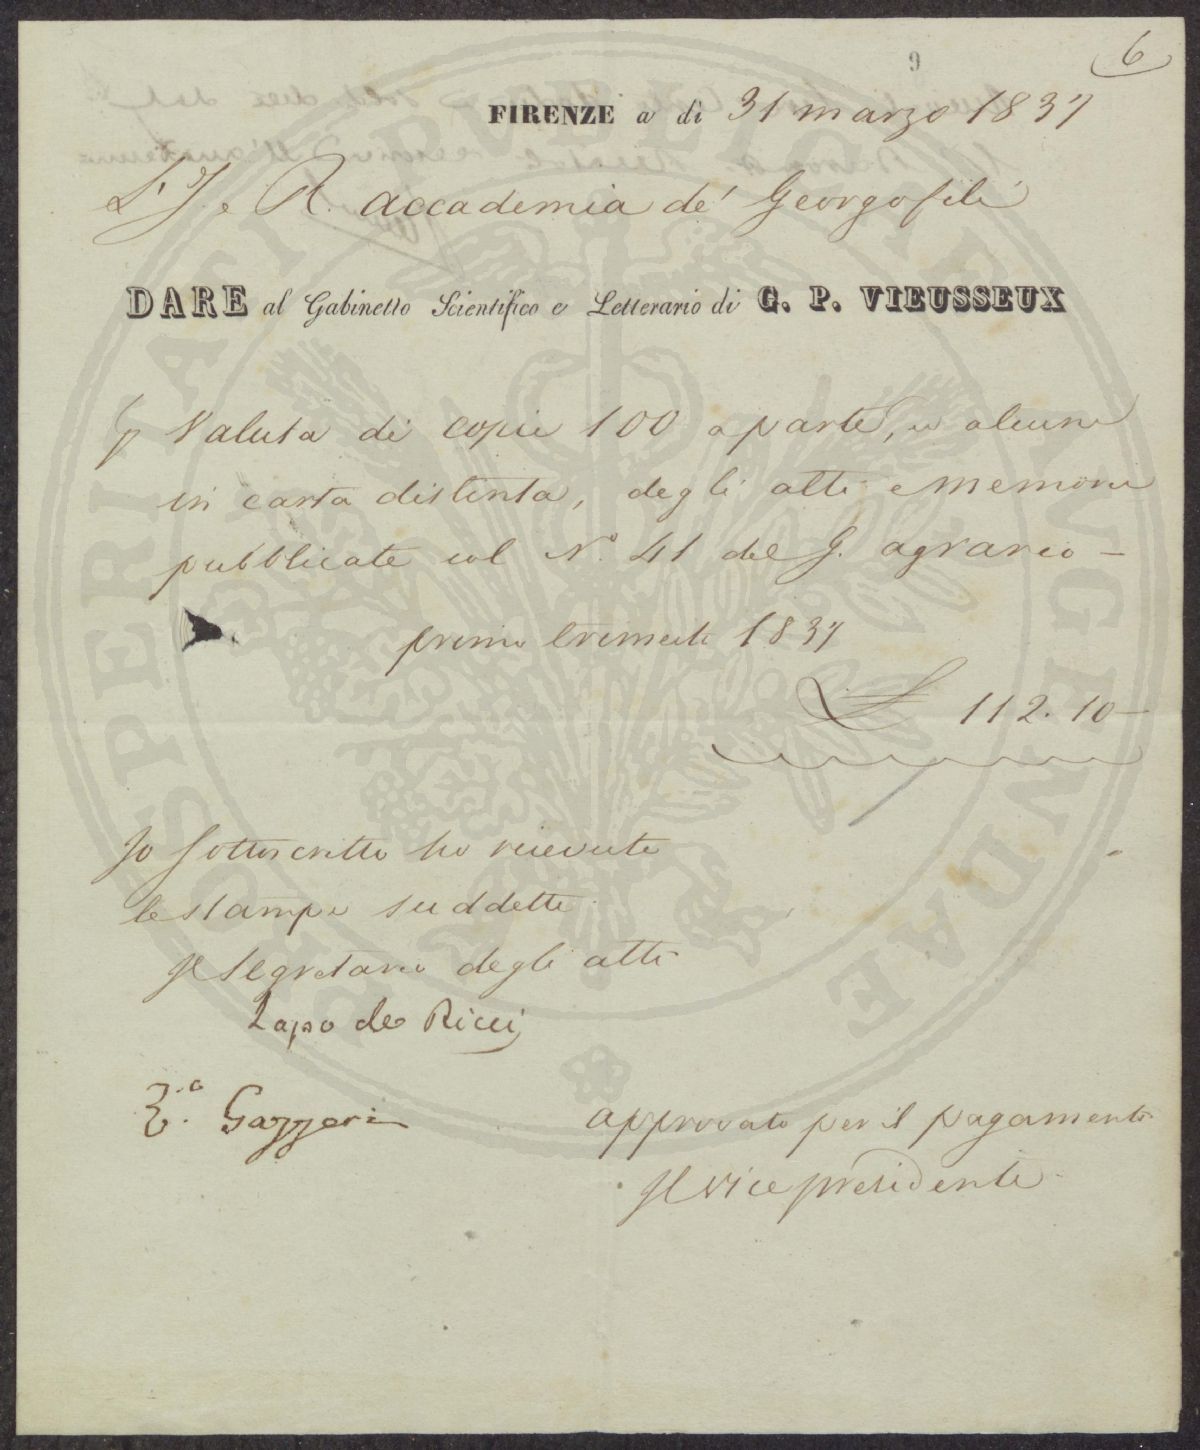 6
9
FIRENZE a dì 31 marzo 1837
L'I. e R. accademia de' Georgofili
DARE al Gabinetto Scientifico e Letterario di G. P. VIEUSSEUX
p Valuta di copie 100 a parte, e alcune
in carta distinta, degli atti e memorie
pubblicate col N.º 41 del G. agrario —
primo trimestre 1837
£ 112. 10 —
Io sottoscritto ho ricevute
le stampe suddette
Il Segretario degli atti
Lapo de Ricci
Gazzeri
approvato per il pagamento
Il vice presidente
PROSPERITATI PUBLICAE AUGENDAE